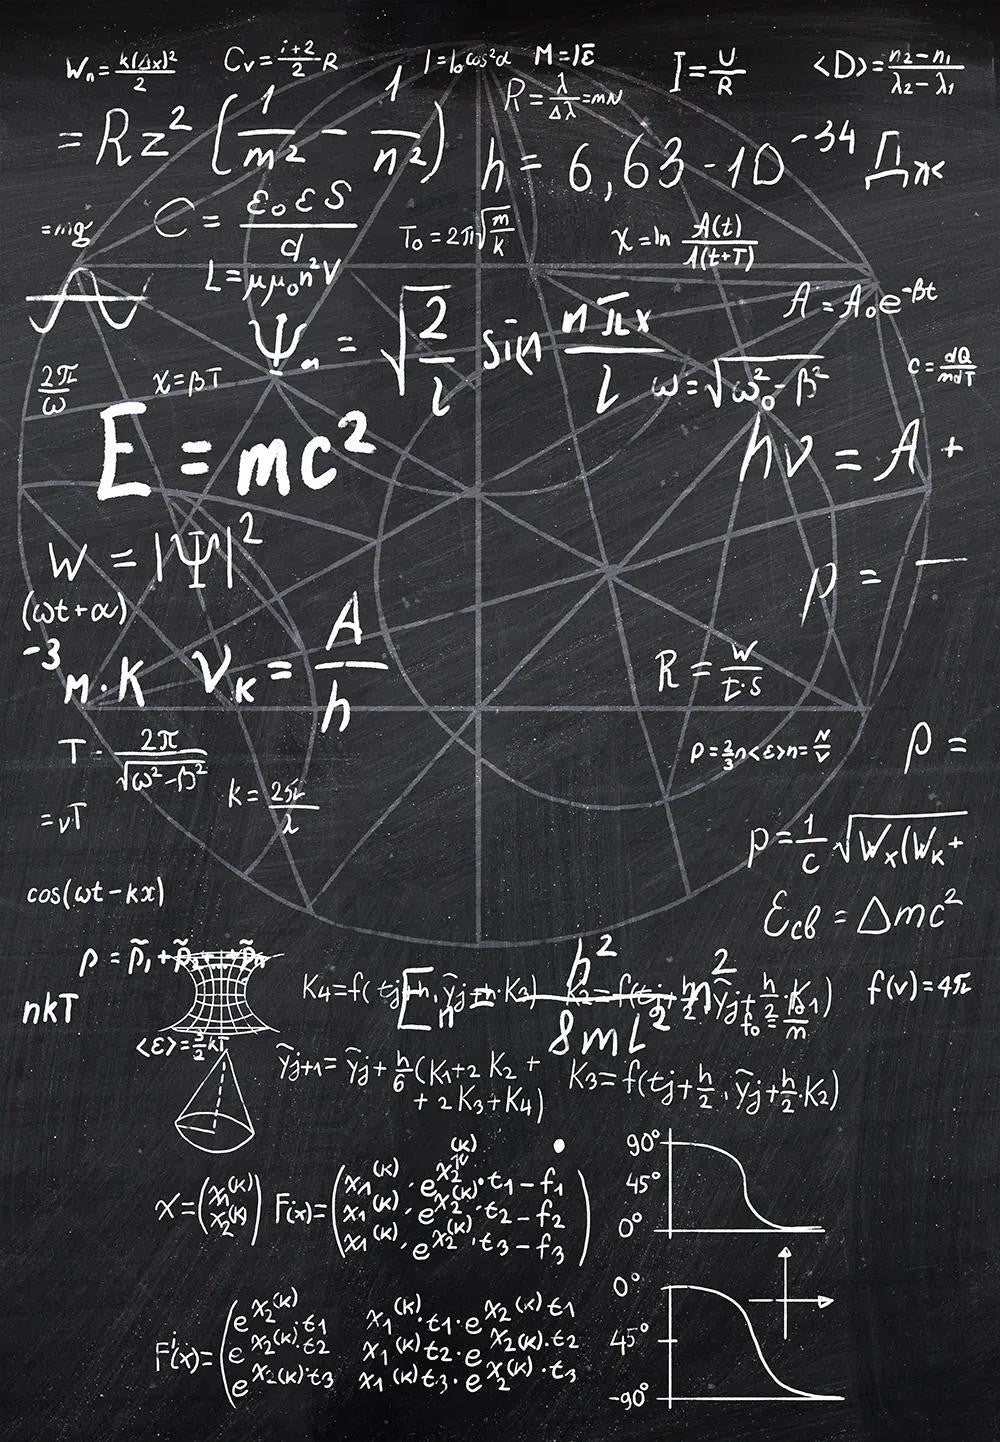 Wₙ = k(Δx)²/2
Cᵥ = i+2/2 R
I = I₀cos²α
M = IE̅
R = λ/Δλ = mN
I = U/R
<D> = n₂-n₁/λ₂-λ₁
= Rz² (1/m² - 1/n²)
h = 6,63·10⁻³⁴ Дж
= mg
C = ε₀εS/d
T₀ = 2π√m/k
χ = ln A(t)/A(t+T)
L = μμ₀n²V
A = A₀e^-βt
Ψₙ = √2/l sin nπx/l
ω = √ω₀² - β²
c = dQ/mdT
2π/ω
χ = βT
E = mc²
hν = A +
w = |Ψ|²
p = —
(ωt + α)
⁻³ м·К
νₖ = A/h
R = W/t·S
T - 2π/√ω² - β²
p = 2/3 n<ε> n = N/V
ρ =
= νT
k = 2π/λ
p = 1/c √Wₖ(Wₖ +
cos(ωt - kx)
Eсв = Δmc²
p = p̃₁ + p̃₂ ... + p̃ₙ
K₄ = f(tj+h, ỹj + h·K₃)
K₂ = f(tj + h/2, ỹj + h/2·K₁)
Eₙ = h²/8ml² n²
f(v) = 4π
nkT
<ε> = 3/2 kT
ỹj+1 = ỹj + h/6 (K₁ + 2K₂ +
+ 2K₃ + K₄)
K₃ = f(tj + h/2, ỹj + h/2·K₂)
90°
45°
0°
X = (x₁^(k) x₂^(k))
F(x) = (x₁^(k)·e^x₂^(k)·t₁ - f₁
x₁^(k)·e^x₂^(k)·t₂ - f₂
x₁^(k)·e^x₂^(k)·t₃ - f₃)
0°
45°
-90°
F'(x) = (e^x₂^(k)·t₁ x₁^(k)·t₁·e^x₂^(k)t₁
e^x₂(k)·t₂ x₁^(k)t₂·e^x₂(k)·t₂
e^x₂(k)·t₃ x₁^(k)t₃·e^x₂^(k)·t₃